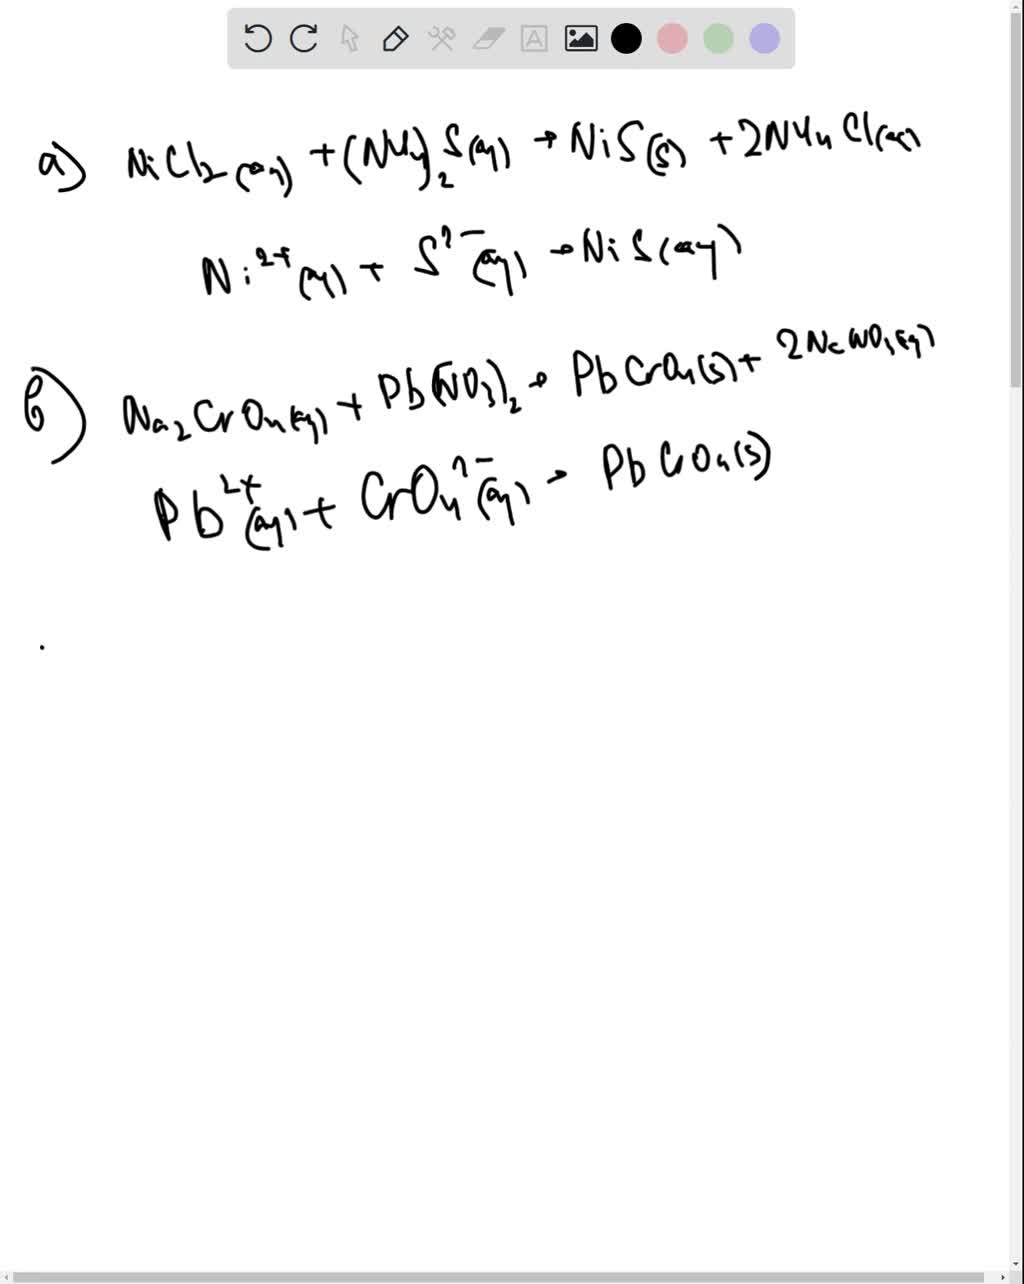 a) NiCl₂(aq) + (NH₄)₂S(aq) → NiS(s) + 2NH₄Cl(aq)
Ni²⁺(aq) + S²⁻(aq) → NiS(aq)
b) Na₂CrO₄(aq) + Pb(NO₃)₂ → PbCrO₄(s) + 2NaNO₃(aq)
Pb²⁺(aq) + CrO₄²⁻(aq) → PbCrO₄(s)